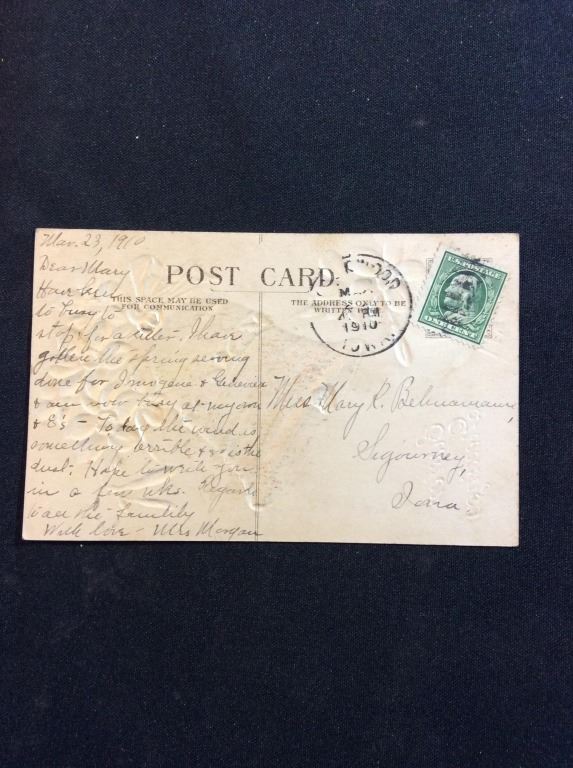 Mar. 23, 1910
Dear Mary
Have been
to busy to
stop for a letter. I have
gotten the spring sewing
done for Imogene & Genevieve
& am now busy at my own
& E's - To day the wind is
something terrible & so is the
dust. Hope to write you
in a few wks. Regards
to all the family
With love - Mrs Morgan
POST CARD.
THIS SPACE MAY BE USED
FOR COMMUNICATION
THE ADDRESS ONLY TO BE
WRITTEN HERE
1910
IOWA.
U.S. POSTAGE
ONE CENT
Miss Mary R.
Sigourney,
Iowa.